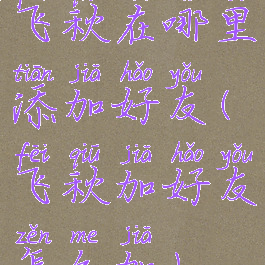 飞秋在哪里
tiān jiā hǎo yǒu
添加好友(
fēi qiū jiā hǎo yǒu
飞秋加好友
zěn me jiā
怎么加)